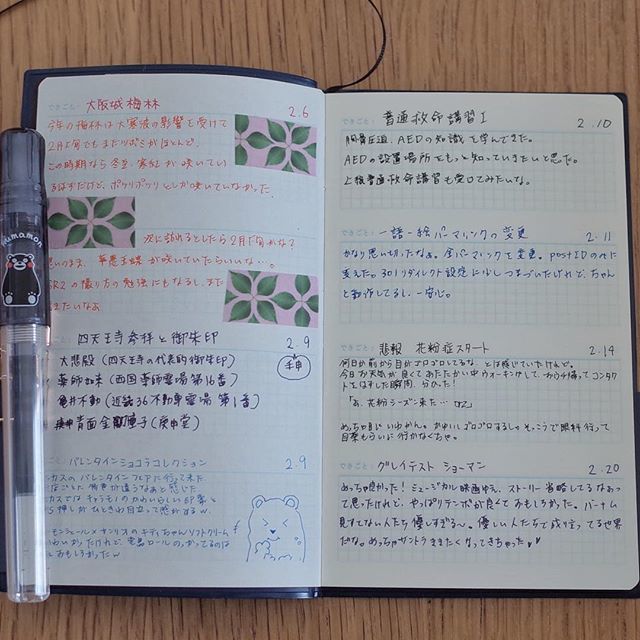 できごと： 大阪城梅林 2.6
今年の梅林は大寒波の影響を受けて
2月下旬でもまだつぼみがほとんど。
この時期なら冬至、寒紅が咲いてい
るはずだけど、ポツリポツリとしか咲いていなかった。
次に訪れるとしたら2月下旬かな？
思いのまま、華農玉蝶が咲いていたらいいな…。
GR2の撮り方の勉強にもなるし、また
きたいなぁ
四天王寺参拝と御朱印 2.9
大悲殿（四天王寺の代表的御朱印）
薬師如来（四国薬師霊場第16番）
亀井不動（近畿36不動尊霊場第1番）
青面金剛童子（庚申堂）
できごと： バレンタインショコラコレクション 2.9
のバレンタインフェアに行って来た
印象と
押しがひときわ目立って感じがする
モンシュール×サンリオのキティちゃんソフトクリーム
かわいかったけれど、
おもしろかったw
kumamon
できごと： 普通救命講習Ⅰ 2.10
胸骨圧迫、AEDの知識を学んできた。
AEDの設置場所をもっと知っていきたいと思った。
上級普通救命講習も受けてみたいな。
できごと： 一語一絵パーマリンクの変更 2.11
かなり思い切ったなぁ。全パーマリンクを変更。postIDのみに
変えた。301リダイレクト設定に少しつまづいたけれど、ちゃん
と動作してるし、一安心。
できごと： 悲報 花粉症スタート 2.14
何日か前から目がゴロゴロしてるな とは感じていたけれど。
今日お天気が良くてあたたかい中ウォーキングして、わらび帰ってコンタク
トをはずした瞬間、分かった！
「あ、花粉シーズン来た… orz」
めっちゃ目にいわかん。かゆいしゴロゴロするし。そっこうで眼科行って
目薬もらいに行かなくちゃ。
できごと： グレイテスト ショーマン 2.20
めっちゃ良かった！ ミュージカル映画ゆえ、ストーリー省略してるなぁっ
て思ったけれど、やっぱりテンポが良くておもしろかった。バーナム
見すてない人たち優しすぎる〜。優しい人たちで成り立ってる世界
だな。めっちゃサントラききたくなってきちゃった